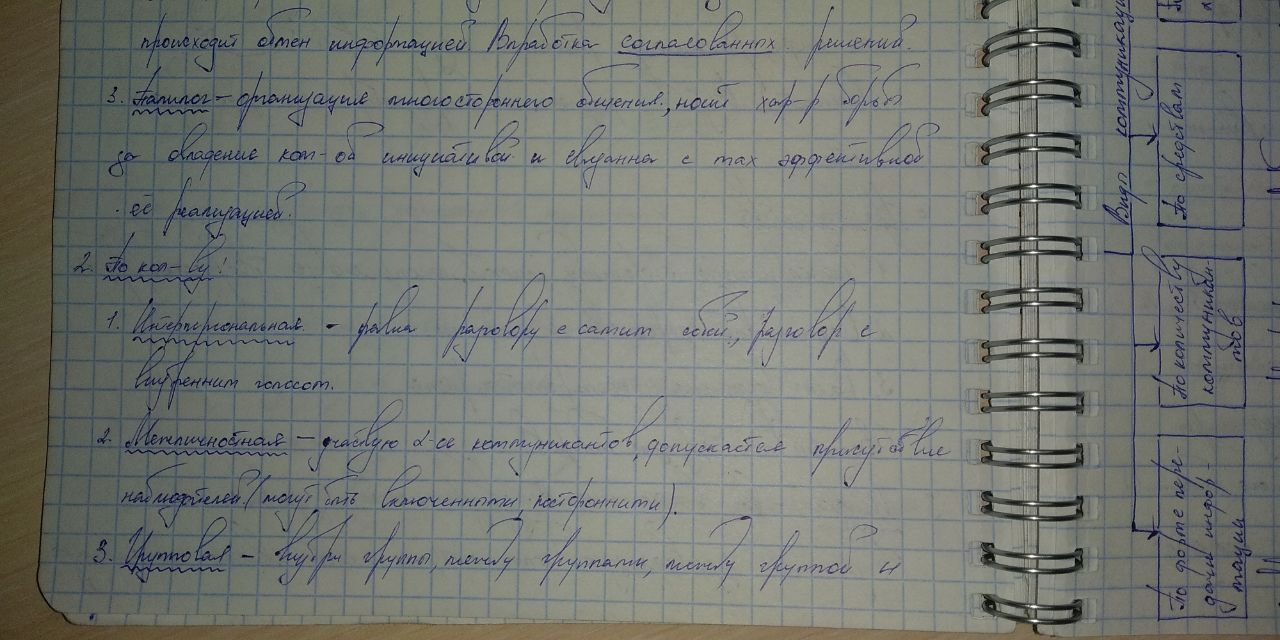 происходит обмен информацией. Выработка согласованных решений.
3. Полилог – организация многостороннего общения, носит хар-р борьбы
за овладение ком-ой инициативой и связанна с max эффективной
её реализацией.
2. По кол-ву:
1. Интерперсональная - равна разговору с самим собой, разговор с
внутренним голосом.
2. Межличностная – участвую 2-ое коммуникантов, допускается присутствие
наблюдателей (могут быть включенными, посторонними).
3. Групповая – внутри группы, между группами, между группой и
Виды коммуникаци
По средствам
По количеству
коммуникан-
тов
По форме пере-
дачи инфор-
мации